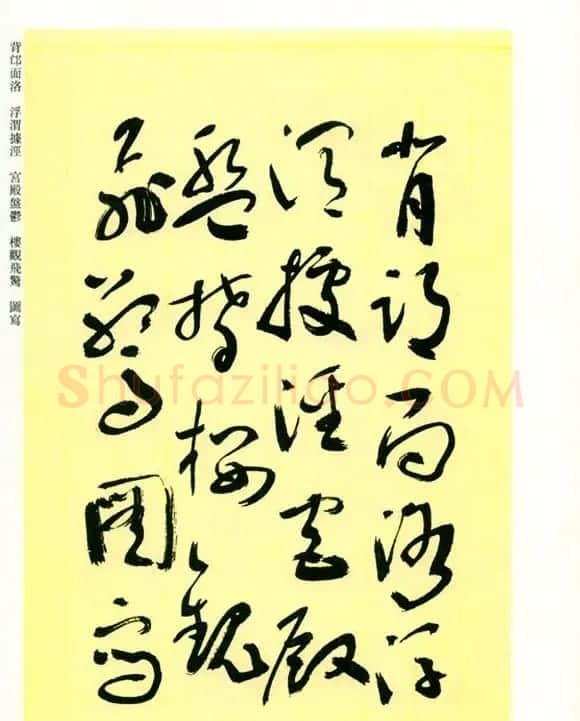 背邙面洛浮
渭據涇宮殿
盤鬱樓觀
飛驚圖寫
背邙面洛 浮渭據涇 宮殿盤鬱 樓觀飛驚 圖寫
Shufaziliao.COM